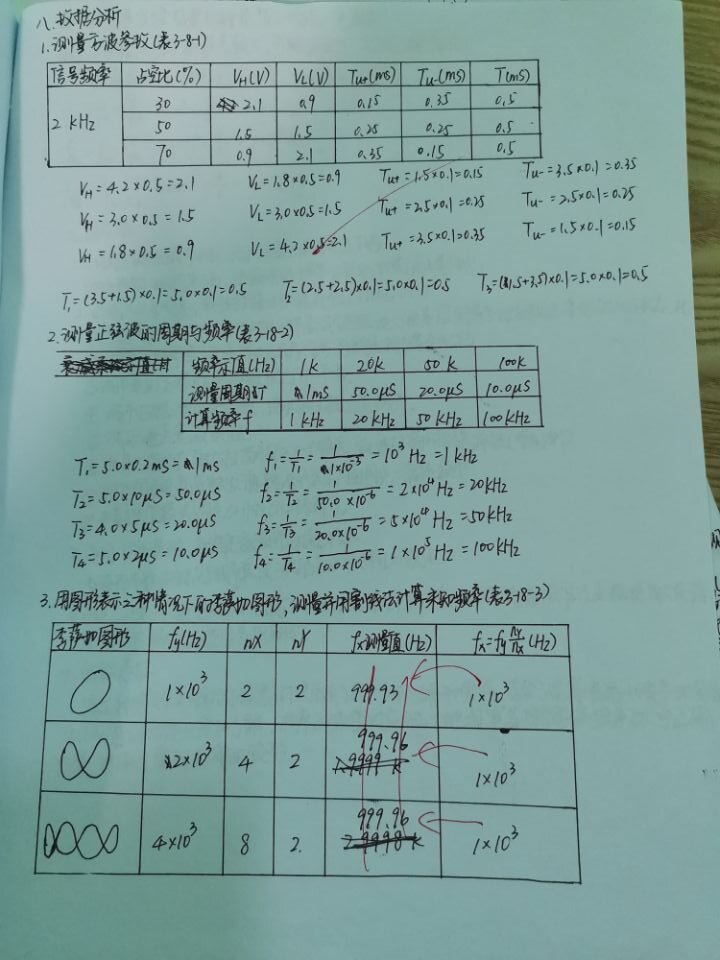 八.数据分析
1.测量方波参数(表3-8-1)
信号频率 占空比(%) VH(V) VL(V) Tu+(ms) Tu-(ms) T(ms)
2 kHz
30 2.1 0.9 0.15 0.35 0.5
50 1.5 1.5 0.25 0.25 0.5
70 0.9 2.1 0.35 0.15 0.5
VH=4.2×0.5=2.1 VL=1.8×0.5=0.9 Tu+=1.5×0.1=0.15 Tu-=3.5×0.1=0.35
VH=3.0×0.5=1.5 VL=3.0×0.5=1.5 Tu+=2.5×0.1=0.25 Tu-=2.5×0.1=0.25
VH=1.8×0.5=0.9 VL=4.2×0.5=2.1 Tu+=3.5×0.1=0.35 Tu-=1.5×0.1=0.15
T1=(3.5+1.5)×0.1=5.0×0.1=0.5 T2=(2.5+2.5)×0.1=5.0×0.1=0.5 T3=(1.5+3.5)×0.1=5.0×0.1=0.5
2.测量正弦波的周期与频率(表3-18-2)
频率示值(Hz) 1k 20k 50k 100k
测量周期T 1ms 50.0μs 20.0μs 10.0μs
计算频率f 1kHz 20kHz 50kHz 100kHz
T1=5.0×0.2ms=1ms f1=1/T1=1/1×10⁻³=10³Hz=1kHz
T2=5.0×10μs=50.0μs f2=1/T2=1/50.0×10⁻⁶=2×10⁴Hz=20kHz
T3=4.0×5μs=20.0μs f3=1/T3=1/20.0×10⁻⁶=5×10⁴Hz=50kHz
T4=5.0×2μs=10.0μs f4=1/T4=1/10.0×10⁻⁶=1×10⁵Hz=100kHz
3.用图形表示三种情况下的李萨如图形,测量并用割线法计算未知频率(表3-18-3)
李萨如图形 fy(Hz) nX nY fx测量值(Hz) fx=fy ny/nx(Hz)
1×10³ 2 2 999.93 1×10³
2×10³ 4 2 999.96 1×10³
4×10³ 8 2 999.96 1×10³